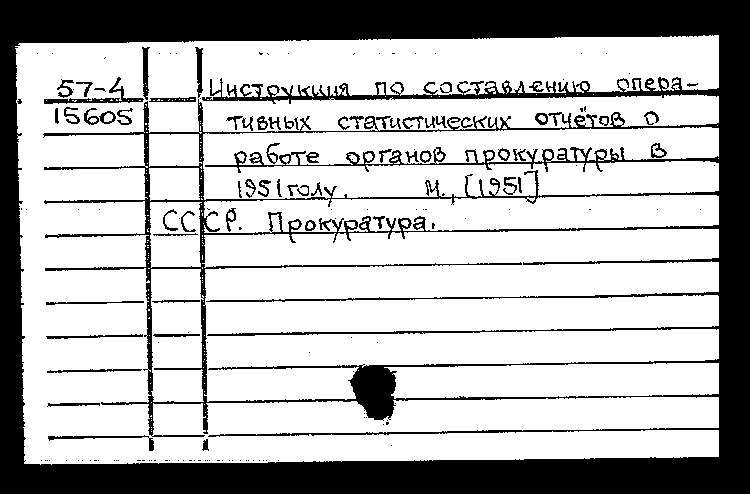 57-4 Инструкция по составлению опера-
15605 тивных статистических отчётов о
работе органов прокуратуры в
1951 году. М., [1951]
СССР. Прокуратура.